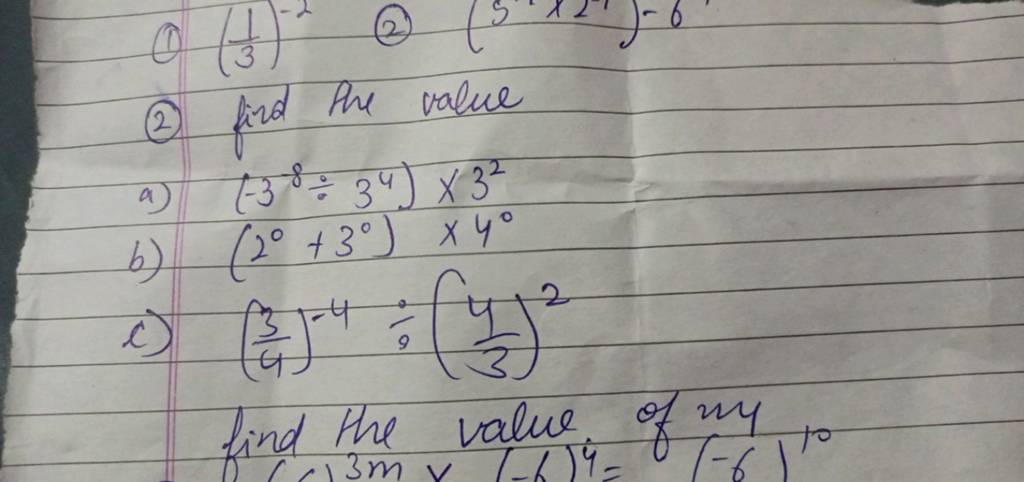 ① (1/3)⁻² ② (5⁻¹ × 2⁻¹) - 6
② find the value
a) (-3⁻⁸ ÷ 3⁴) × 3²
b) (2⁰ + 3⁰) × 4⁰
c) (3/4)⁻⁴ ÷ (4/3)²
find the value of my
)³ᵐ × (-6)⁴ = (-6)¹⁰